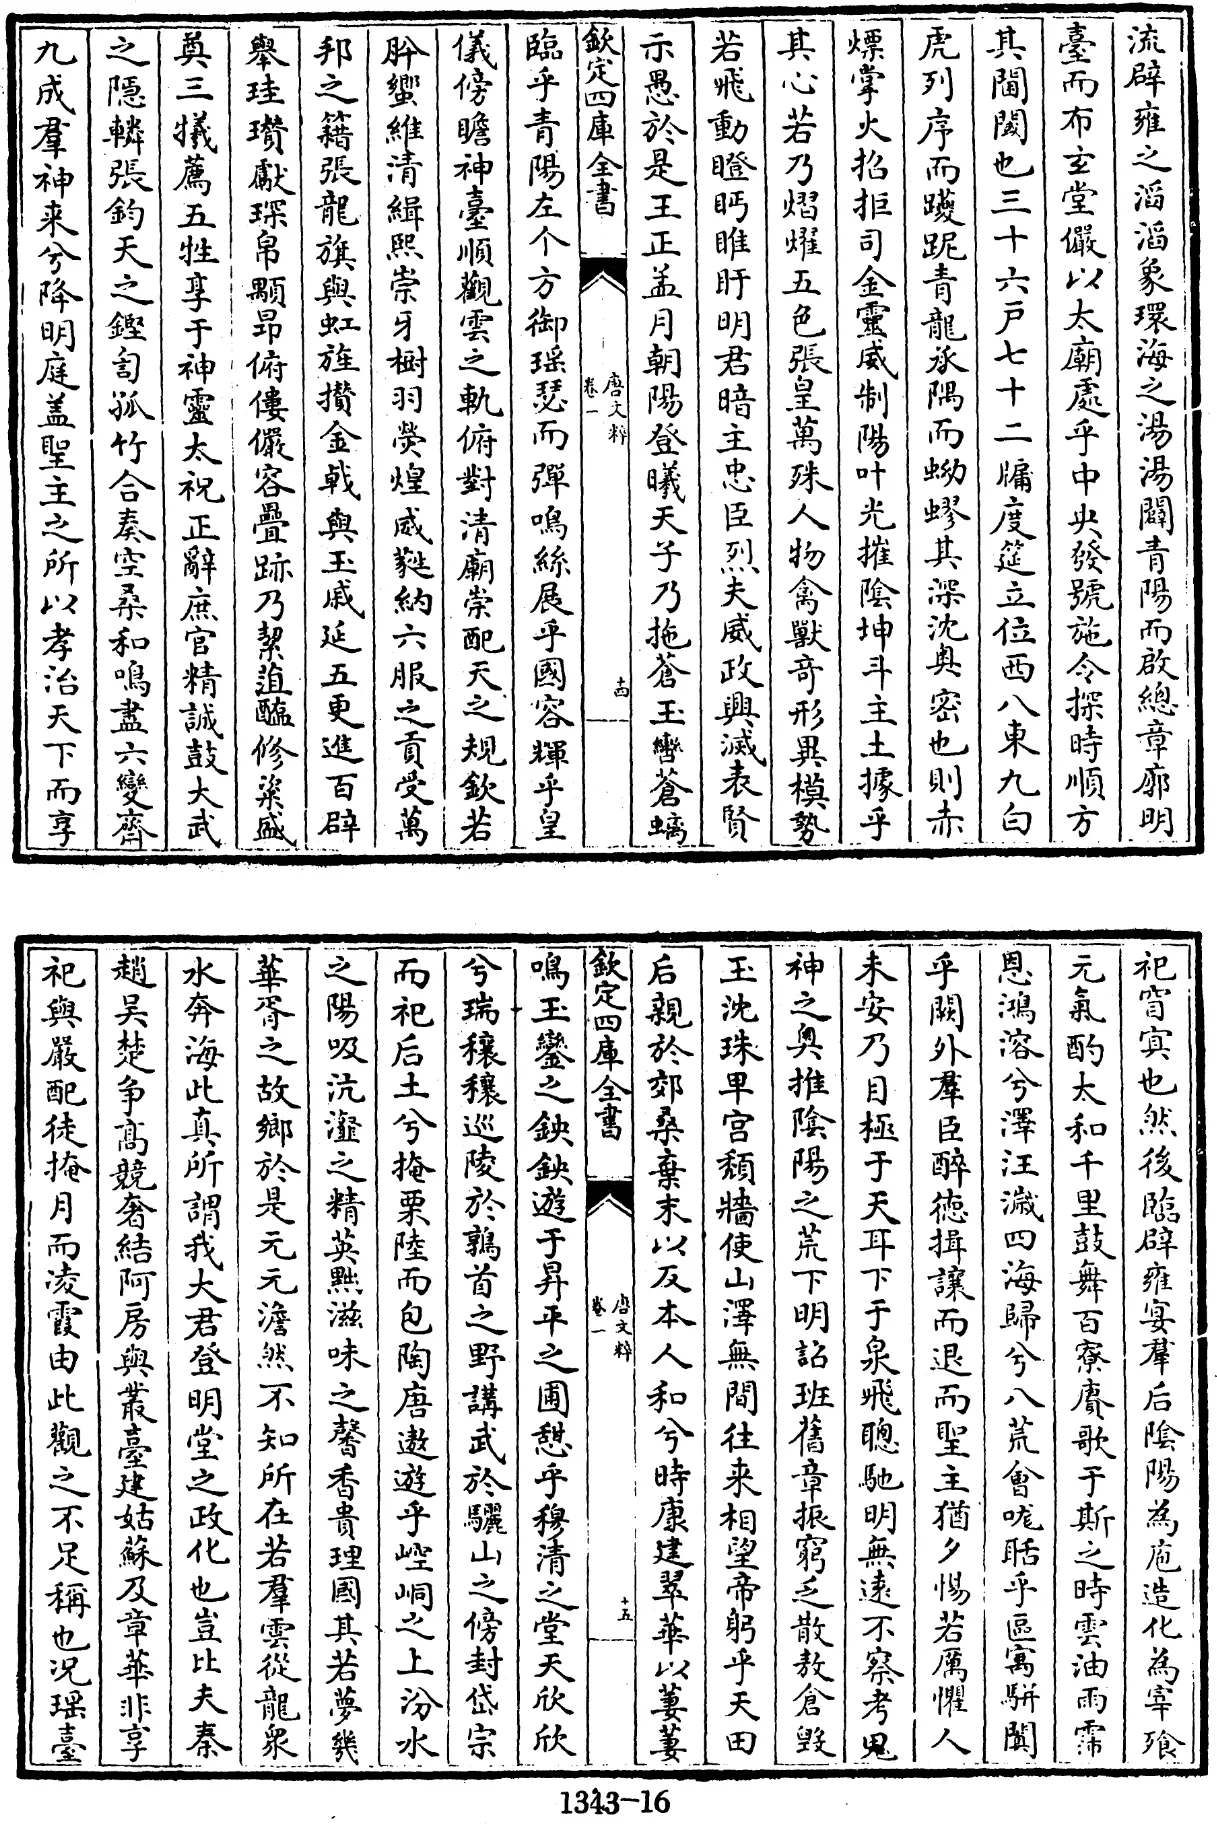 流辟雍之滔滔象環海之湯湯闢青陽而啟總章廓明
臺而布玄堂儼以太廟處乎中央發號施令採時順方
其閫閾也三十六戸七十二牖度筵立位西八東九白
虎列序而躨跜青龍承隅而蚴蟉其深沈奥密也則赤
熛掌火招拒司金靈威制陽叶光摧陰坤斗主土據乎
其心若乃熠燿五色張皇萬殊人物禽獸竒形異模勢
若飛動瞪眄睢盱明君暗主忠臣烈夫威政興滅表賢
示愚於是王正孟月朝陽登曦天子乃拖蒼玉轡蒼螭
欽定四庫全書
唐文粹
卷一
十四
臨乎青陽左个方御瑶瑟而彈鳴絲展乎國容輝乎皇
儀傍瞻神臺順觀雲之軌俯對清廟崇配天之規欽若
肸蠁維清緝熙崇牙樹羽熒煌威蕤納六服之貢受萬
邦之籍張龍旗與虹旌攢金戟與玉戚延五更進百辟
舉珪瓚獻琛帛顒昻俯僂儼容疊跡乃絜菹醢修粢盛
奠三犧薦五牲享于神靈太祝正辭庶官精誠鼓大武
之隱轔張鈞天之鏗訇孤竹合奏空桑和鳴盡六變齊
九成羣神来兮降明庭盖聖主之所以孝治天下而享
祀窅寘也然後臨辟雍宴羣后陰陽為庖造化為宰飱
元氣酌太和千里鼓舞百寮賡歌于斯之時雲油雨霈
恩鴻溶兮澤汪濊四海歸兮八荒會哤聒乎區寓駢闐
乎闕外羣臣醉徳揖讓而退而聖主猶夕惕若厲懼人
未安乃目極于天耳下于泉飛聰馳明無逺不察考鬼
神之奥推隂陽之荒下明詔班舊章振窮乏散敖倉毁
玉沈珠卑宫頽牆使山澤無間往来相望帝躬乎天田
后親於郊桑棄末以反本人和兮時康建翠華以萋萋
欽定四庫全書
唐文粹
卷一
十五
鳴玉鑾之鉠鉠遊于昇平之圃憩乎穆清之堂天欣欣
兮瑞穰穰巡陵於鶉首之野講武於驪山之傍封岱宗
而祀后土兮掩栗陸而包陶唐遨遊乎崆峒之上汾水
之陽吸沆瀣之精英黜滋味之馨香貴理國其若夢幾
華胥之故鄉於是元元澹然不知所在若羣雲從龍衆
水奔海此真所謂我大君登明堂之政化也豈比夫秦
趙吴楚争髙競奢結阿房與叢臺建姑蘇及章華非享
祀與嚴配徒掩月而凌霞由此觀之不足稱也况瑶臺
1343-16